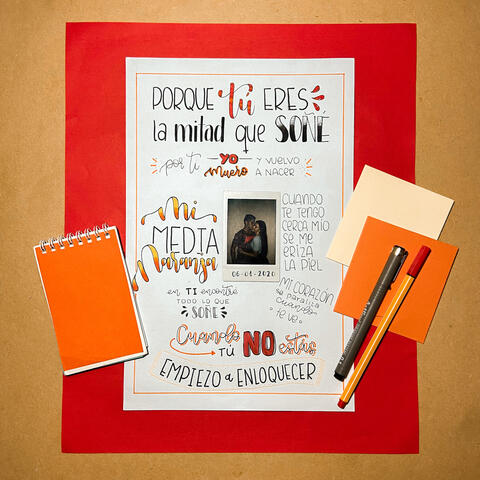 PORQUE tú ERES
la mitad que SOÑÉ
por ti YO muero Y VUELVO A NACER
Mi
MEDIA
Naranja
en TI encontré
TODO LO QUE
SOÑÉ
06-04-2020
CUANDO
TE TENGO
CERCA MÍO
SE ME
ERIZA
LA PIEL
MI CORAZÓN
se paraliza
CUANDO
TE VE
Cuando
TÚ NO estás
EMPIEZO a ENLOQUECER